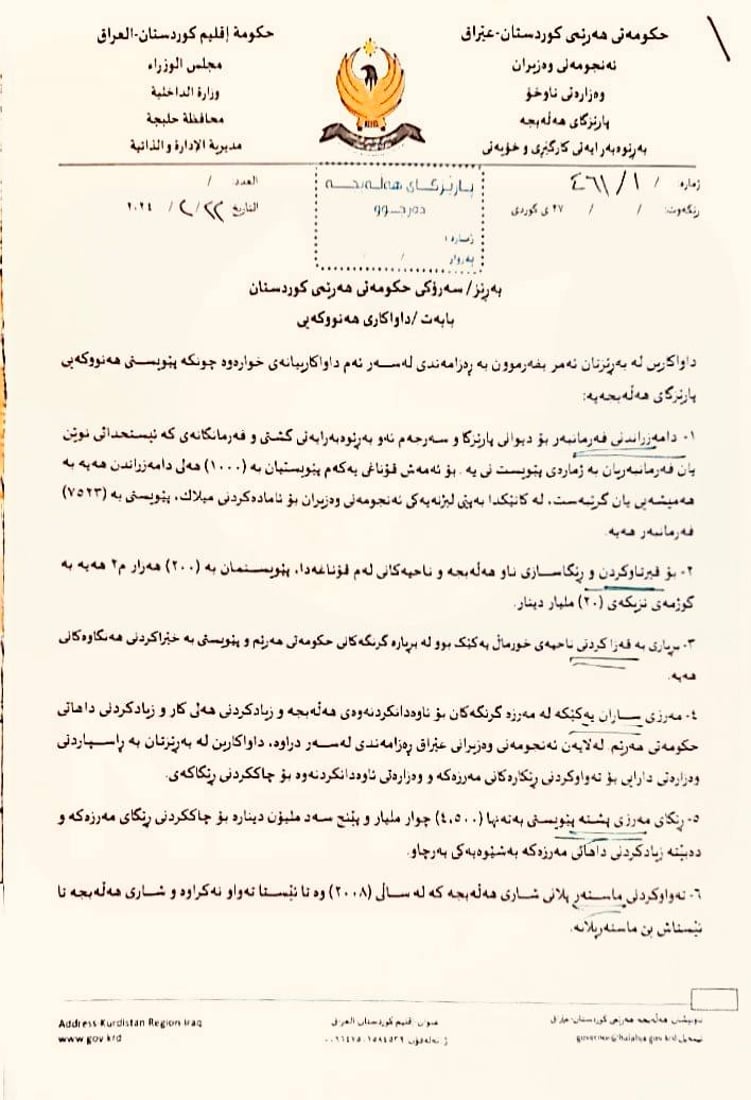 حكومەتی هەرێمی كوردستان-عێراق
ئەنجومەنی وەزیران
وەزارەتی ناوخۆ
پارێزگای هەڵەبجە
بەڕێوەبەرایەتی كارگێڕی و خۆیەتی
حكومة إقليم كوردستان-العراق
مجلس الوزراء
وزارة الداخلية
محافظة حلبجة
مديرية الإدارة والذاتية
ژمارە: / ١/ ٤٦١
ڕێكەوت: / / ٢٧ ی كوردی
پارێزگای هەڵەبجە
دەرچوو
ژمارە :
بەروار / /
العدد: /
التاريخ ٢٢/ ٢/ ٢٠٢٤
بەڕێز/ سەرۆكی حكومەتی هەرێمی كوردستان
بابەت /داواكاری هەنووكەیی
داواكارین لە بەڕێزتان ئەمر بفەرموون بە ڕەزامەندی لەسەر ئەم داواكارییانەی خوارەوە چونكە پێویستی هەنووكەیی
پارێزگای هەڵەبجەیە:
١- دامەزراندنی فەرمانبەر بۆ دیوانی پارێزگا و سەرجەم ئەو بەڕێوەبەرایەتی گشتی و فەرمانگانەی كە ئیستحداتی نوێن
یان فەرمانبەریان بە ژمارەی پێویست نی یە. بۆ ئەمەش قۆناغی یەكەم پێویستیان بە (١٠٠٠) هەلی دامەزراندن هەیە بە
هەمیشەیی یان گرێبەست، لە كاتێكدا بەپێی لیژنەیەكی ئەنجومەنی وەزیران بۆ ئامادەكردنی میلاك، پێویستی بە (٧٥٢٣)
فەرمانبەر هەیە.
٢- بۆ قیرتاوكردن و ڕێگاسازی ناو هەڵەبجە و ناحیەكانی لەم قۆناغەدا، پێویستمان بە (٢٠٠) هەزار م٢ هەیە بە
گوژمەی نزیكەی (٢٠) ملیار دینار.
٣- بڕیاری بە قەزا كردنی ناحیەی خورماڵ یەكێك بوو لە بڕیارە گرنگەكانی حكومەتی هەرێم و پێویستی بە خێراكردنی هەنگاوەكانی
هەیە.
٤- مەرزی ساران یەكێكە لە مەرزە گرنگەكان بۆ ئاوەدانكردنەوەی هەڵەبجە و زیادكردنی هەلی كار و زیادكردنی داهاتی
حكومەتی هەرێم. لەلایەن ئەنجومەنی وەزیرانی عێراق ڕەزامەندی لەسەر دراوە، داواكارین لە بەڕێزتان بە ڕاسپاردنی
وەزارەتی دارایی بۆ تەواوكردنی ڕێكارەكانی مەرزەكە و وەزارەتی ئاوەدانكردنەوە بۆ چاككردنی ڕێگاكەی.
٥- ڕێگای مەرزی پشتە پێویستی بەتەنها (٤,٥٠٠) چوار ملیار و پێنج سەد ملیۆن دینارە بۆ چاككردنی ڕێگای مەرزەكە و
دەبێتە زیادكردنی داهاتی مەرزەكە بەشێوەیەكی بەرچاو.
٦- تەواوكردنی ماستەر پلانی شاری هەڵەبجە كە لە ساڵی (٢٠٠٨) وە تا ئێستا تەواو نەكراوە و شاری هەڵەبجە تا
ئێستاش بێ ماستەرپلانە.
ناونیشان: هەڵەبجە هەرێمی كوردستان-عێراق
عنوان: اقليم كوردستان العراق
Address Kurdistan Region Iraq
www.gov.krd